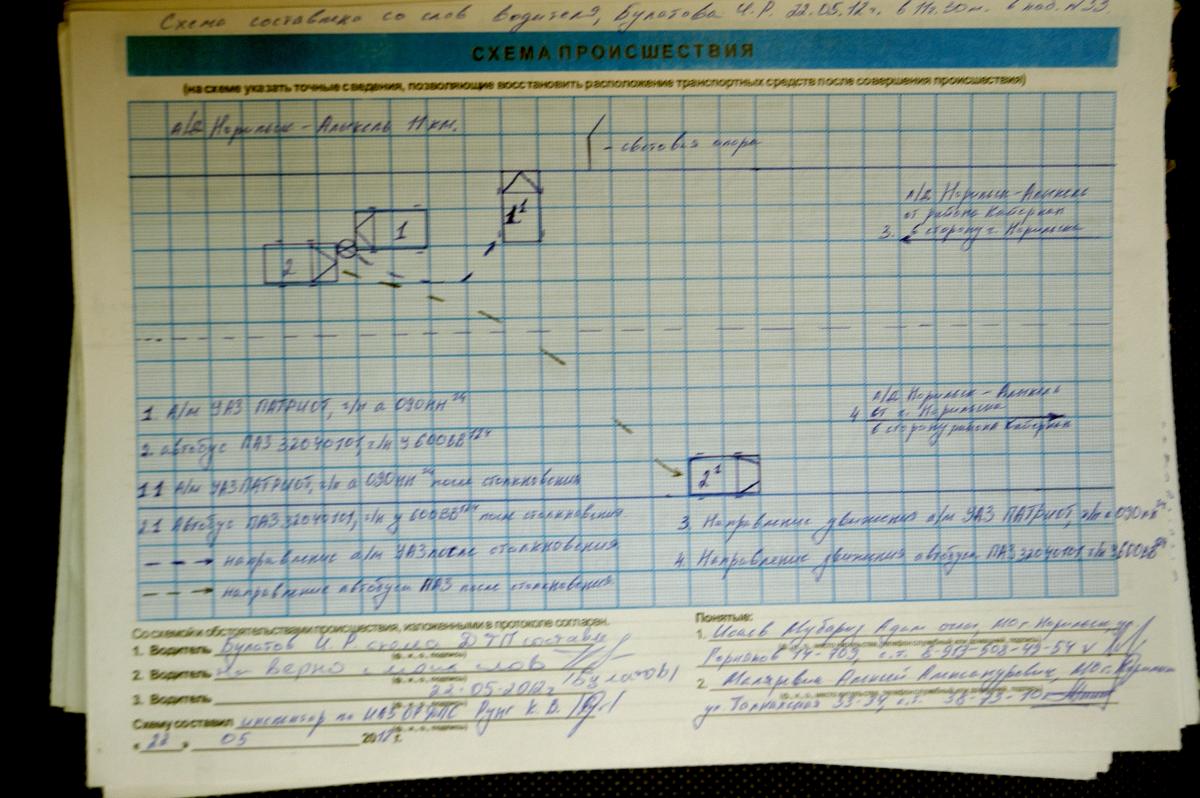 Схема составлена со слов водителя, Булатова И.Р. 22.05.12г. в 11ч.30м. в каб. №33
СХЕМА ПРОИСШЕСТВИЯ
(на схеме указать точные сведения, позволяющие восстановить расположение транспортных средств после совершения происшествия)
А/Д Норильск - Алыкель 11 км.
- световая опора
1
1¹
2
А/Д Норильск - Алыкель
от района Кайеркан
3. в сторону г. Норильска
А/Д Норильск - Алыкель
4 от г. Норильска
в сторону района Кайеркан
2¹
1. А/м УАЗ ПАТРИОТ, г/н а 090нн²⁴
2. автобус ПАЗ 32040101, г/н У600ВВ¹²⁴
1.1 А/м УАЗ ПАТРИОТ, г/н а 090нн²⁴ после столкновения
2.1 Автобус ПАЗ 32040101, г/н у 600ВВ¹²⁴ после столкновения
- направление а/м УАЗ после столкновения
- направление автобуса ПАЗ после столкновения
3. Направление движения а/м УАЗ ПАТРИОТ, г/н а 090нн²⁴
4. Направление движения автобуса ПАЗ 32040101, г/н У600ВВ¹²⁴
Со схемой и обстоятельствами происшествия, изложенными в протоколе согласен.
1. Водитель Булатов И.Р. схема ДТП составле
(ф., и., о., подпись)
2. Водитель на верно с моих слов
(ф., и., о., подпись)
/Булатов/
3. Водитель 22.05.2012г
(ф., и., о., подпись)
Схему составил инженер по К.В.
(ф., и., о., подпись)
« 22 » 05 2012 г.
Понятые:
1. Исаев Мубариз Адил оглы, МО г. Норильск, ул.
14-709, с.т. 8-913-508-49-54
2. Алексей Александрович, МО г. Норильск
ул. Талнахская 33-34, с.т.